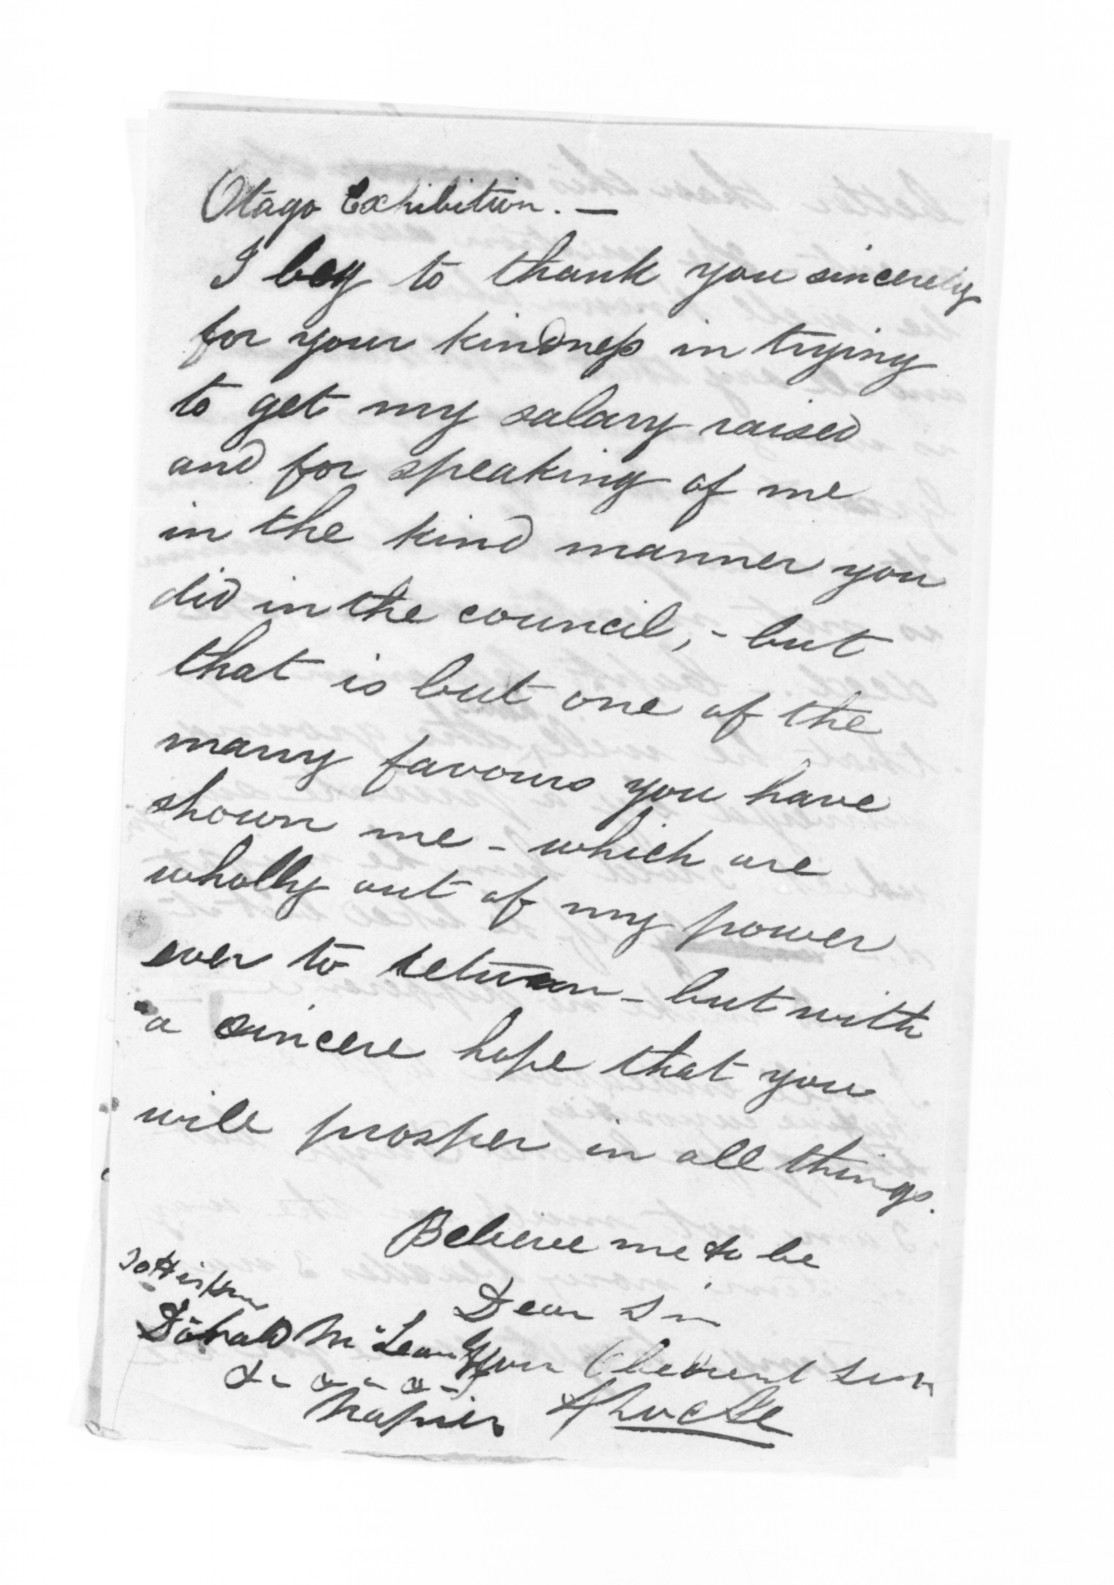 Otago Exhibition. —
I beg to thank you sincerely
for your kindness in trying
to get my salary raised
and for speaking of me
in the kind manner you
did in the council, - but
that is but one of the
many favours you have
shown me - which are
wholly out of my power
ever to return - but with
a sincere hope that you
will prosper in all things.
Believe me to be
Dear Sir
Your Obedient Serv
To His Hon
Donald McLean
Napier